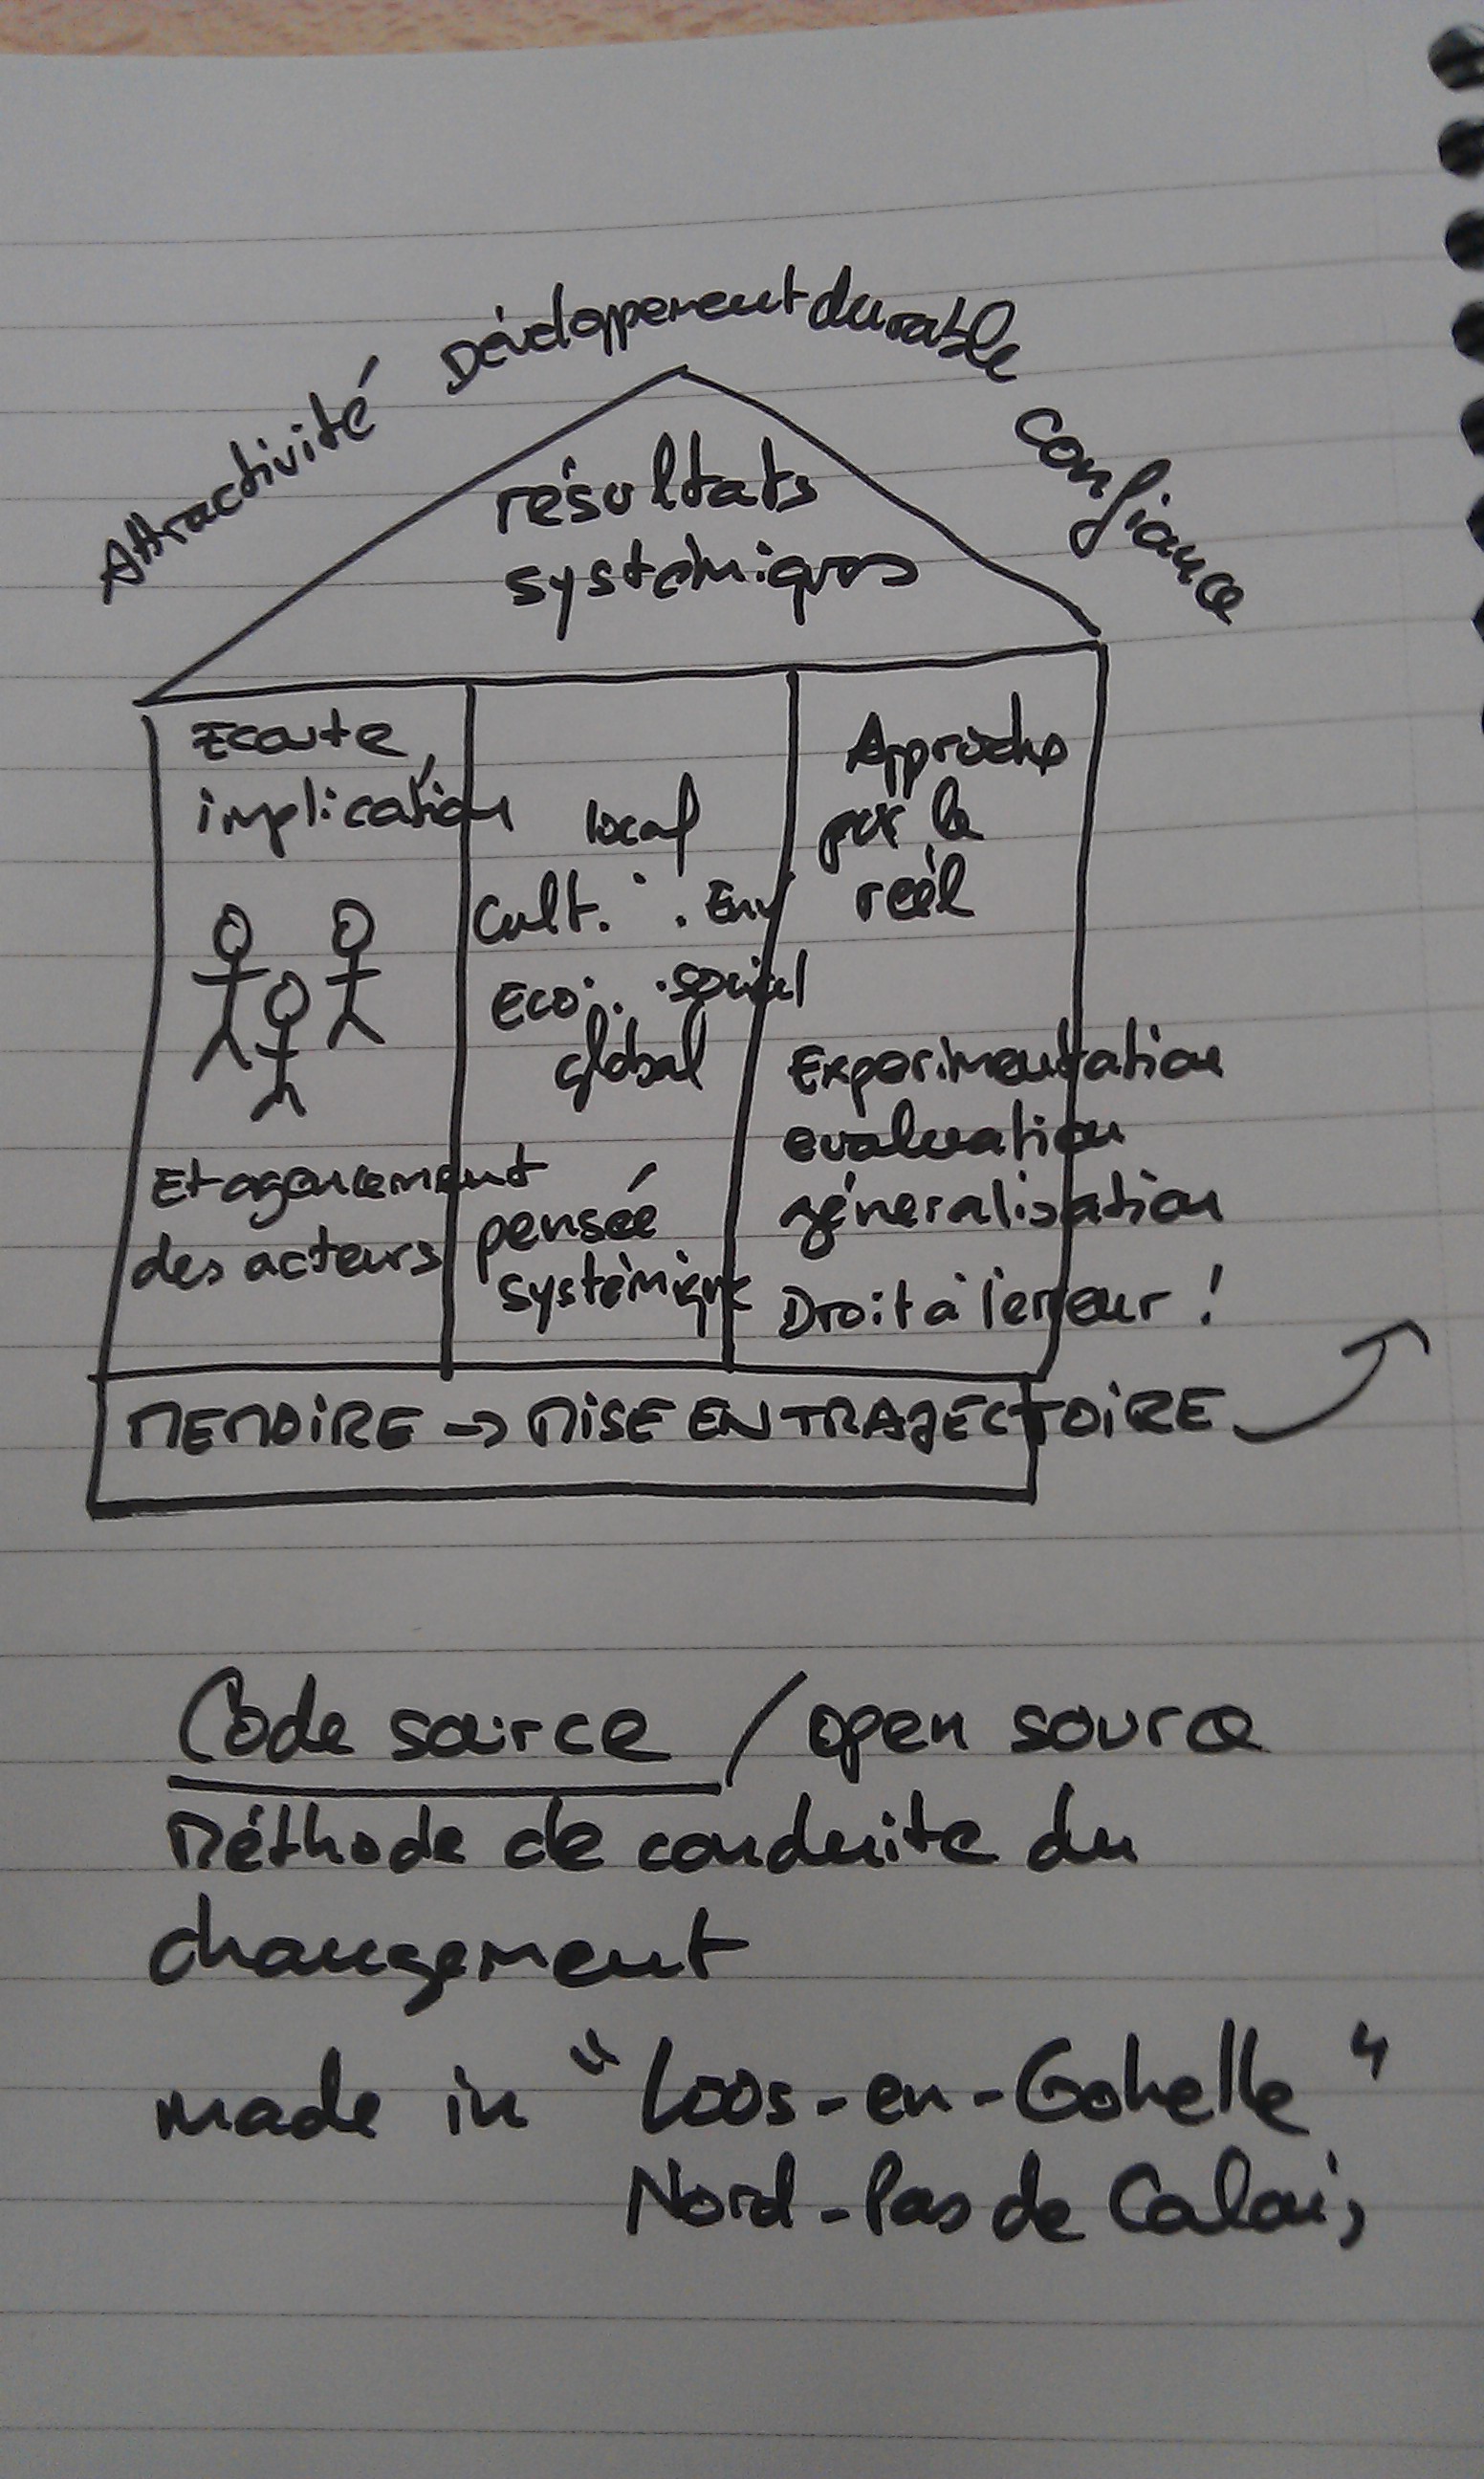 Attractivité
Développement durable
confiance
résultats
systémiques
Ecoute
implication
Et agencement
des acteurs
local
Cult. Env
Eco. social
global
pensée
systémique
Approche
par le
réel
Experimentation
evaluation
géneralisation
Droit à l'erreur !
MEMOIRE → MISE EN TRAJECTOIRE
Code source / open source
Méthode de conduite du
changement
made in "Loos-en-Gohelle"
Nord-Pas de Calais